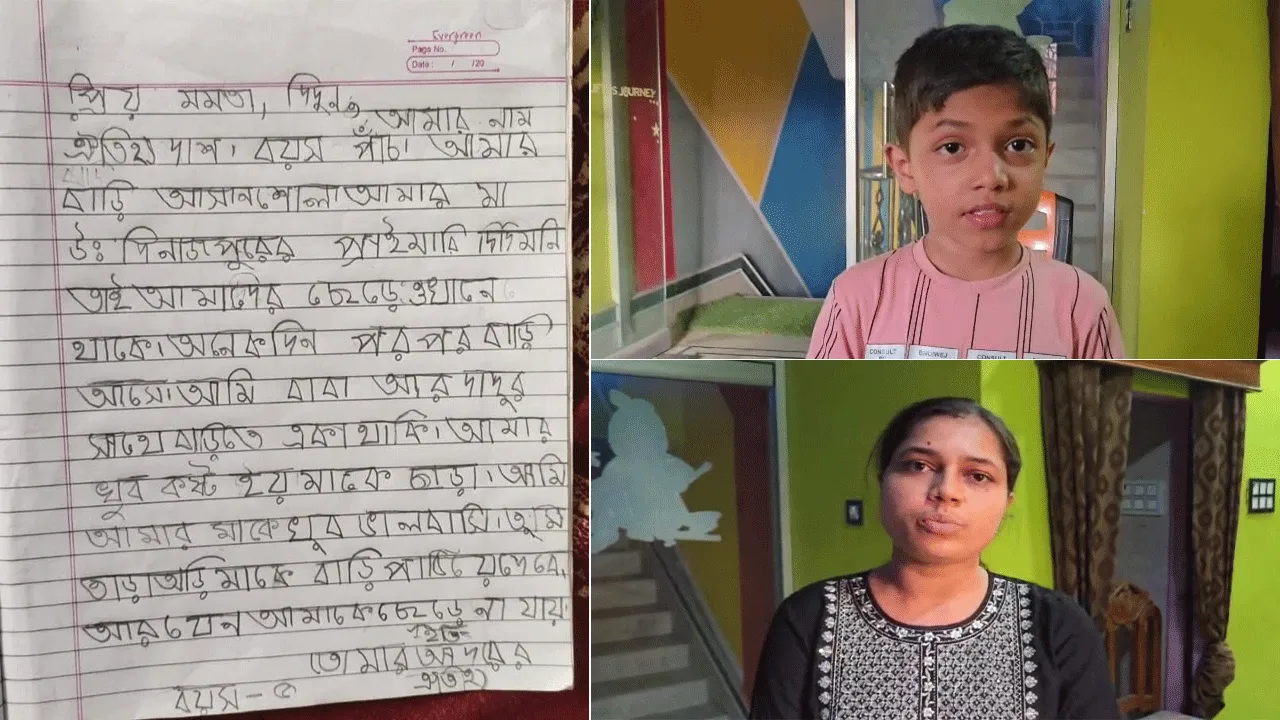 Evergreen
Page No.
Date : / /20
প্রিয় মমতা, দিদুন,
আমার নাম
ঐতিহ্য দাশ। বয়স পাঁচ। আমার
বাড়ি আসানশোল। আমার মা
উঃ দিনাজপুরের প্রাইমারি দিদিমনি
তাই আমাদের ছেড়ে ওখানে
থাকে। অনেক দিন পর পর বাড়ি
আসে। আমি বাবা আর দাদুর
সাথে বাড়িতে একা থাকি। আমার
খুব কষ্ট হয় মাকে ছাড়া। আমি
আমার মাকে খুব ভালবাসি। তুমি
তাড়াতাড়ি মাকে বাড়ি পাঠিয়ে দেবে।
আর যেন আমাকে ছেড়ে না যায়।
ইতি
তোমার আদরের
ঐতিহ্য
বয়স - ৫
JOURNEY
CONSULT
CONSULT